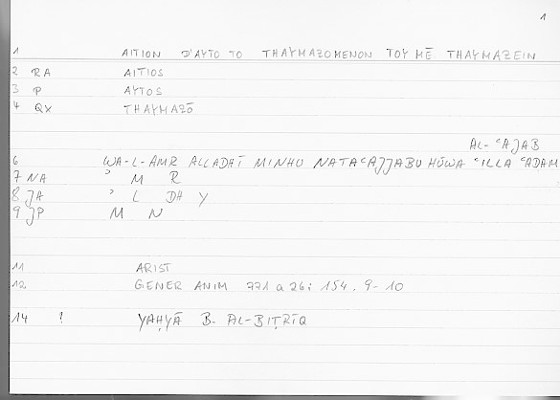 1
1 AITION D'AYTO TO THAYMAZOMENON TOY MĒ THAYMAZEIN
2 RA AITIOS
3 P AYTOS
4 QX THAYMAZŌ
AL-ʿAJAB
6 WA-L-AMR ALLADĀI MINHU NATAʿAJJABU HŪWA ʿILLA ʿADAM
7 NA ʾ M R
8 JA ʾ L DH Y
9 JP M N
11 ARIST
12 GENER ANIM 771 a 26; 154. 9-10
14 ! YAḤYĀ B. AL-BIṬRĪQ